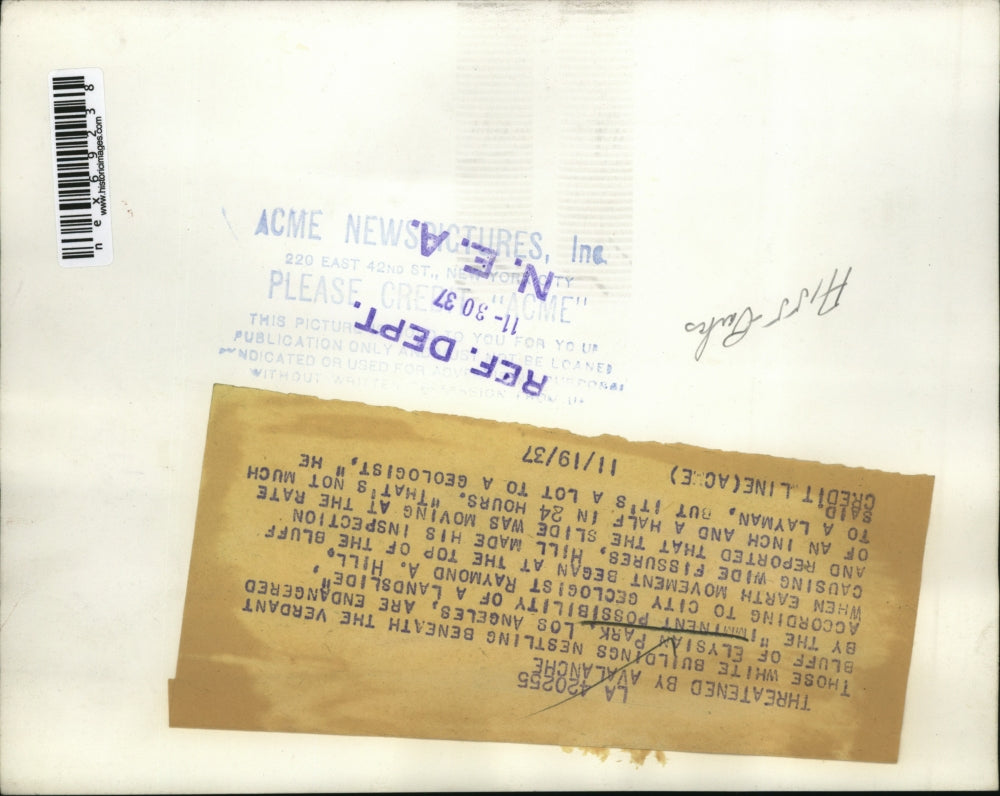 nex69238
www.historicimages.com
ACME NEWSPICTURES, Inc.
220 EAST 42ND ST., NEW YORK CITY
PLEASE CREDIT "ACME"
THIS PICTURE TO YOU FOR YOUR
PUBLICATION ONLY AND MUST NOT BE LOANED
OR USED FOR
WITHOUT WRITTEN
N.E.A.
11-30 37
REF. DEPT.
LA 420255
THREATENED BY AVALANCHE
THOSE WHITE BUILDINGS NESTLING BENEATH THE VERDANT
BLUFF OF ELYSIAN PARK, LOS ANGELES, ARE ENDANGERED
BY THE "IMMINENT POSSIBILITY OF A LANDSLIDE",
ACCORDING TO CITY GEOLOGIST RAYMOND A. HILL.
WHEN EARTH MOVEMENT BEGAN AT THE TOP OF THE BLUFF
CAUSING WIDE FISSURES, HILL MADE HIS INSPECTION
AND REPORTED THAT THE SLIDE WAS MOVING AT THE RATE
OF AN INCH AND A HALF IN 24 HOURS. "THAT'S NOT MUCH
TO A LAYMAN, BUT IT'S A LOT TO A GEOLOGIST," HE
SAID.
CREDIT LINE(ACME) 11/19/37